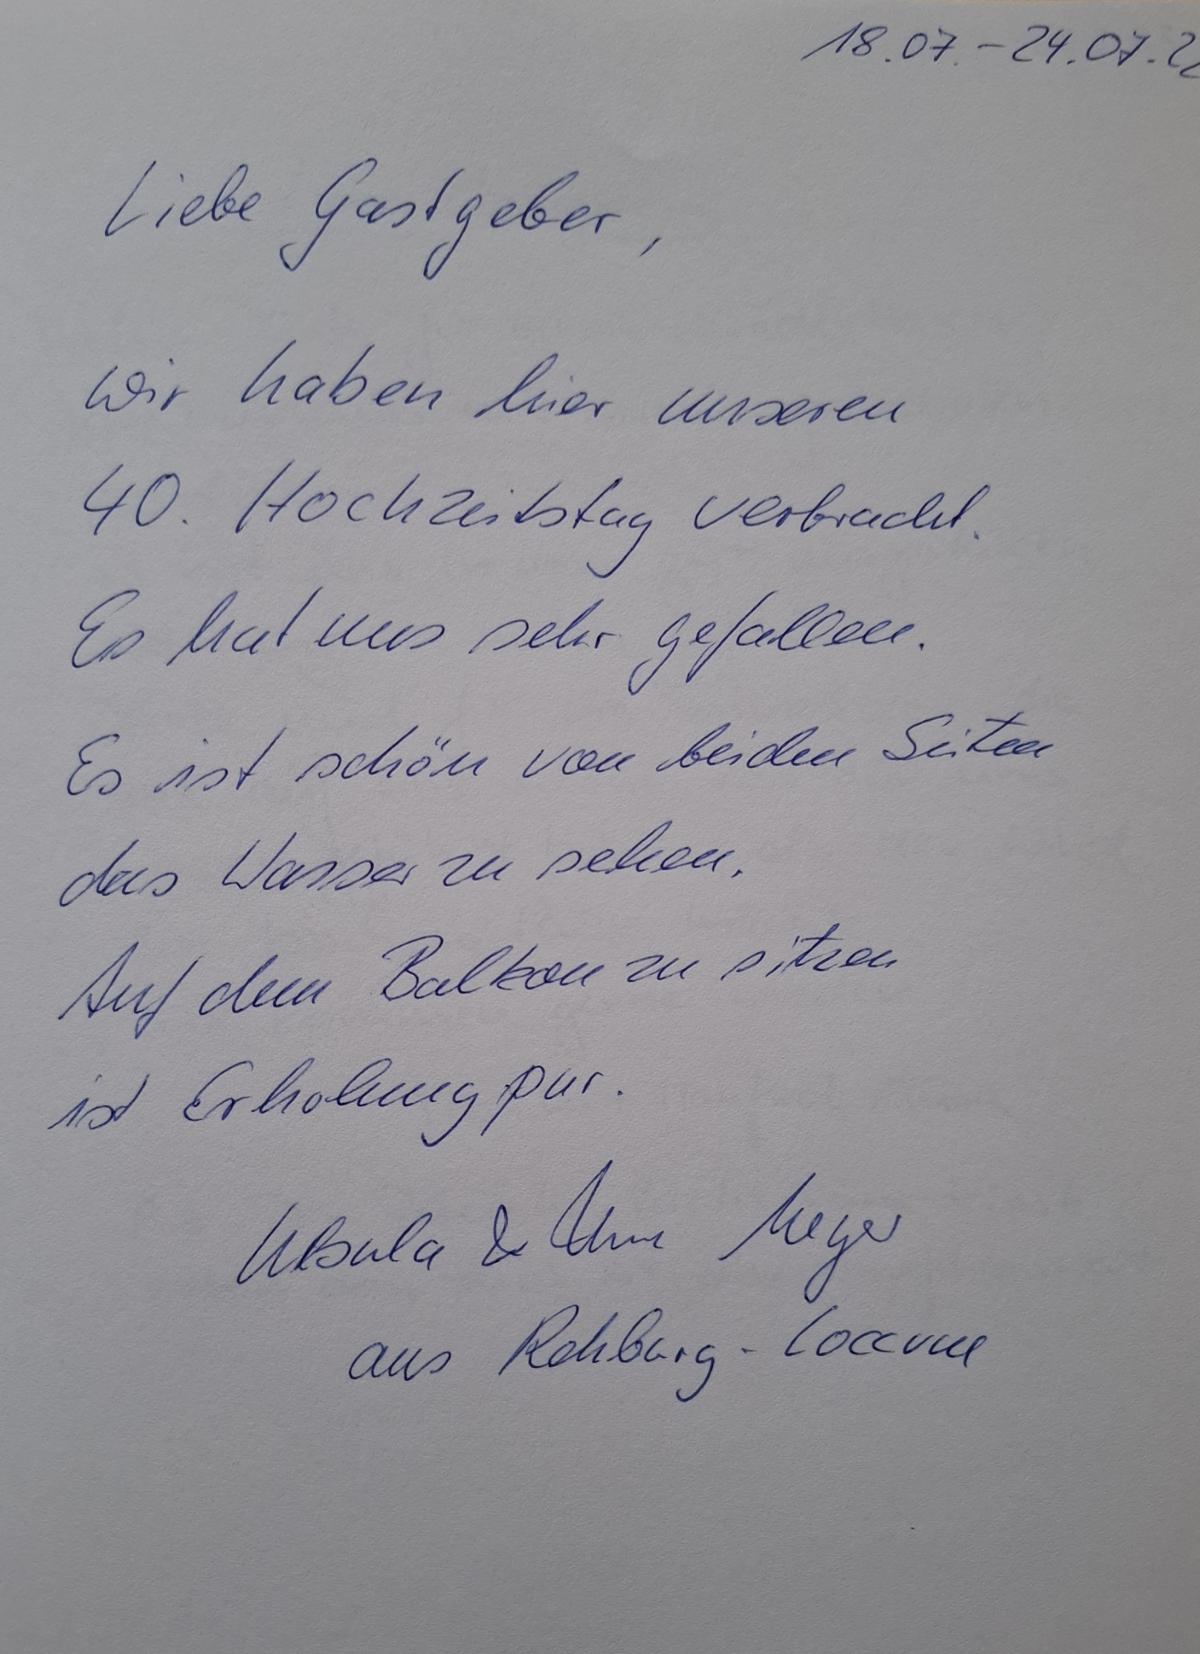 18.07. – 24.07.22
Liebe Gastgeber,
wir haben hier unseren
40. Hochzeitstag verbracht.
Es hat uns sehr gefallen.
Es ist schön von beiden Seiten
das Wasser zu sehen.
Auf dem Balkon zu sitzen
ist Erholung pur.
Ursula & Meyer
aus Rehburg-Loccum